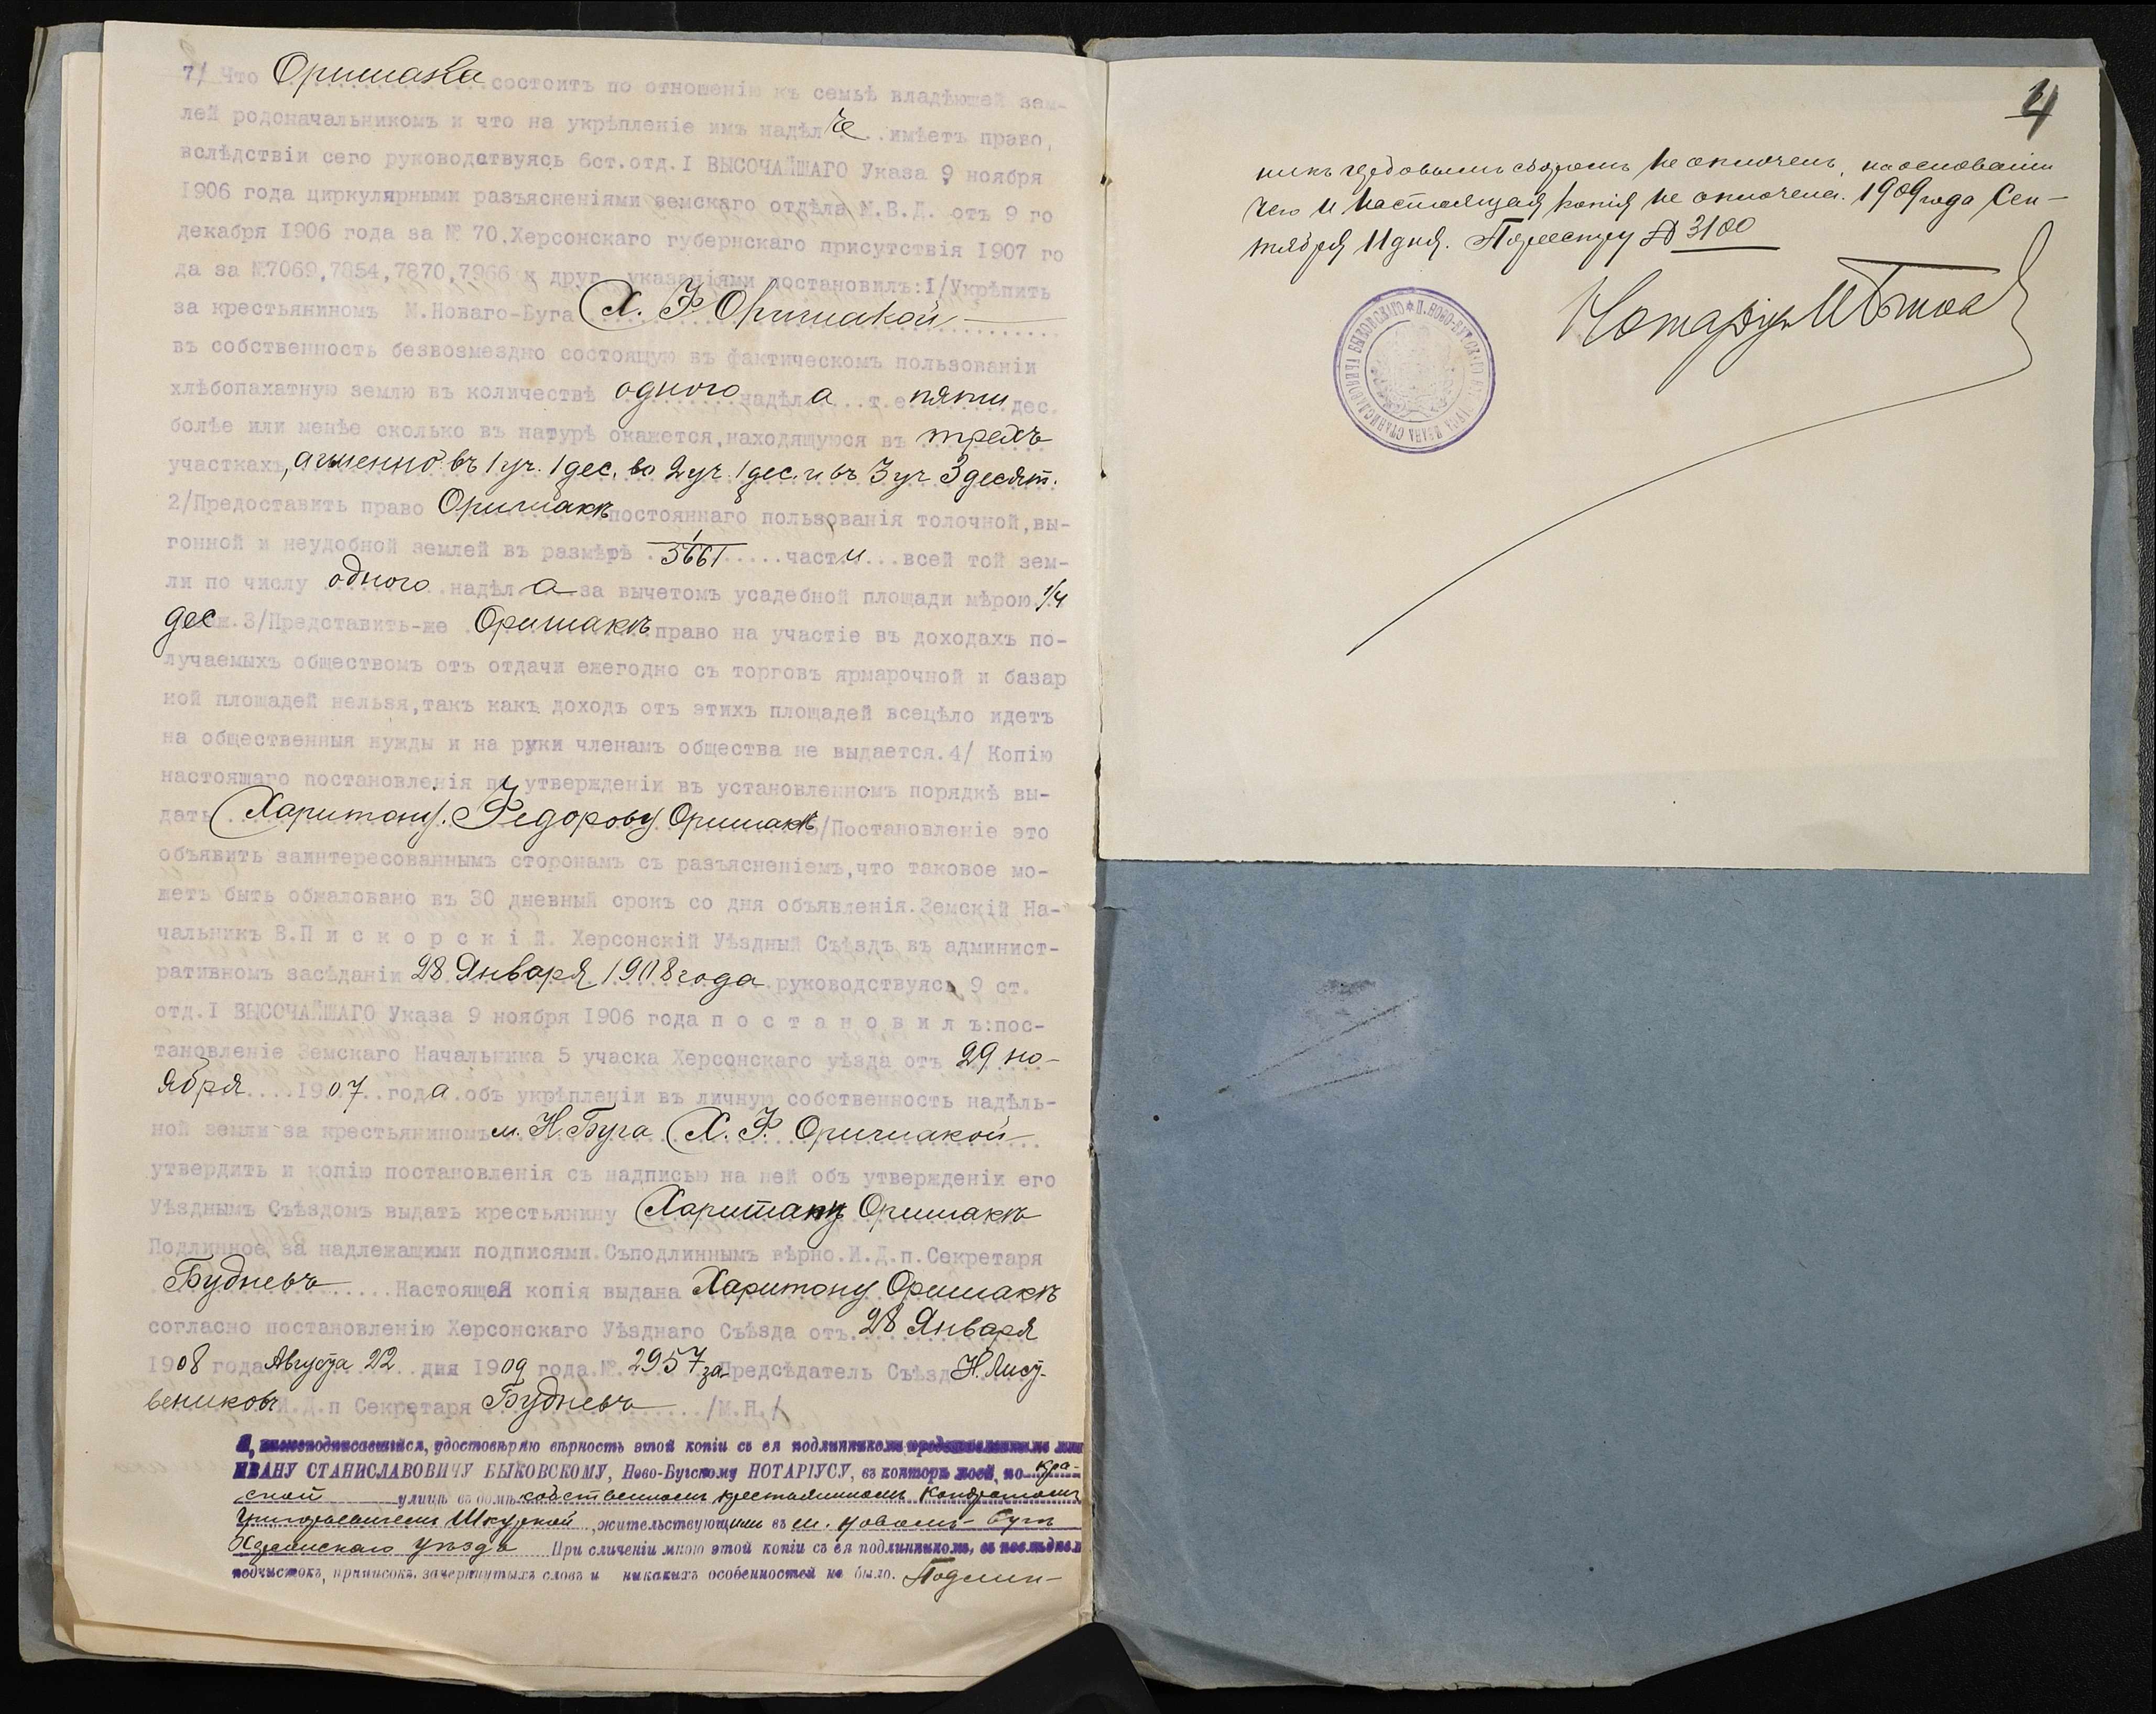 7/ Что Оришака состоитъ по отношенію къ семьѣ владѣющей зем-
лей родоначальникомъ и что на укрѣпленіе имъ надѣл имѣетъ право,
вслѣдствіи сего руководствуясь 6ст.отд.I ВЫСОЧАЙШАГО Указа 9 ноября
1906 года циркулярными разъясненіями земскаго отдѣла М.В.Д. отъ 9 го
декабря 1906 года за № 70,Херсонскаго губернскаго присутствія 1907 го
да за №7069,7854,7870,7966 и друг. указаніями постановилъ:I/Укрѣпить
за крестьяниномъ М.Новаго-Буга Х. Ф. Оришакой
въ собственность безвозмездно состоящую въ фактическомъ пользованіи
хлѣбопахатную землю въ количествѣ одного надѣл а т.е. пяти дес.
болѣе или менѣе сколько въ натурѣ окажется,находящуюся въ трехъ
участкахъ, а именно: въ 1 уч. 1 дес. во 2 уч. 1 дес. и въ 3 уч 3 десят.
2/Предоставить право Оришакѣ постояннаго пользованія толочной,вы-
гонной и неудобной землей въ размѣрѣ 1/5661 част и всей той зем-
ли по числу одного надѣл а за вычетомъ усадебной площади мѣрою 1/4
дес. 3/Представить-же Оришакѣ право на участіе въ доходахъ по-
лучаемыхъ обществомъ отъ отдачи ежегодно съ торговъ ярмарочной и базар
ной площадей нельзя,такъ какъ доходъ отъ этихъ площадей всецѣло идетъ
на общественныя нужды и на руки членамъ общества не выдается.4/ Копію
настоящаго постановленія по утвержденіи въ установленномъ порядкѣ вы-
дать Харитону Федорову Оришакѣ 5/Постановленіе это
объявить заинтересованнымъ сторонамъ съ разъясненіемъ,что таковое мо-
жетъ быть обжаловано въ 30 дневный срокъ со дня объявленія.Земскій На-
чальникъ В.П и с к о р с к і й. Херсонскій Уѣздный Съѣздъ въ админист-
ративномъ засѣданіи 28 Января 1908 года руководствуясь 9 ст.
отд.I ВЫСОЧАЙШАГО Указа 9 ноября 1906 года п о с т а н о в и л ъ:пос-
тановленіе Земскаго Начальника 5 учаска Херсонскаго уѣзда отъ 29 но-
ября 1907 года объ укрѣпленіи въ личную собственность надѣль-
ной земли за крестьяниномъ м. Н. Буга Х. Ф. Оришакой
утвердить и копію постановленія съ надписью на ней объ утвержденіи его
Уѣзднымъ Съѣздомъ выдать крестьянину Харитону Оришакѣ
Подлинное за надлежащими подписями.Съподлиннымъ вѣрно.И.Д.п.Секретаря
Будневъ Настоящая копія выдана Харитону Оришакѣ
согласно постановленію Херсонскаго Уѣзднаго Съѣзда отъ 28 Января
1908 года Августа 22 дня 1909 года.№ 2957 за Предсѣдатель Съѣзд Н. Лист-
вениковъ И.Д.п Секретаря Будневъ /М.П./
Я, нижеподписавшійся, удостовѣряю вѣрность этой копіи съ ея подлинникомъ представленнымъ мнѣ
ИВАНУ СТАНИСЛАВОВИЧУ БЫКОВСКОМУ, Ново-Бугскому НОТАРІУСУ, въ конторѣ моей, по Кра-
сной улицѣ въ домѣ собственномъ крестьяниномъ Кондратомъ
Григорьевичемъ Шкуркой, жительствующимъ въ м. Новомъ-Бугѣ
Херсонскаго уѣзда При сличеніи мною этой копіи съ ея подлинникомъ, въ послѣднемъ
подчистокъ, приписокъ, зачеркнутыхъ словъ и никакихъ особенностей не было. Подлин-
4
никъ гербовымъ сборомъ не оплоченъ, на основаніи
чего и настоящая копія не оплочена. 1909 года Сен-
тября 11 дня. По реестру № 3100
Нотаріусъ